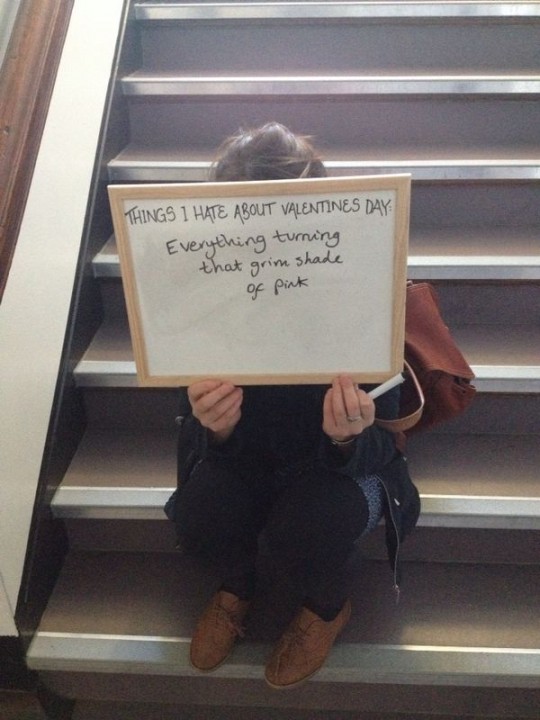 THINGS I HATE ABOUT VALENTINES DAY:
Everything turning
that grim shade
of pink